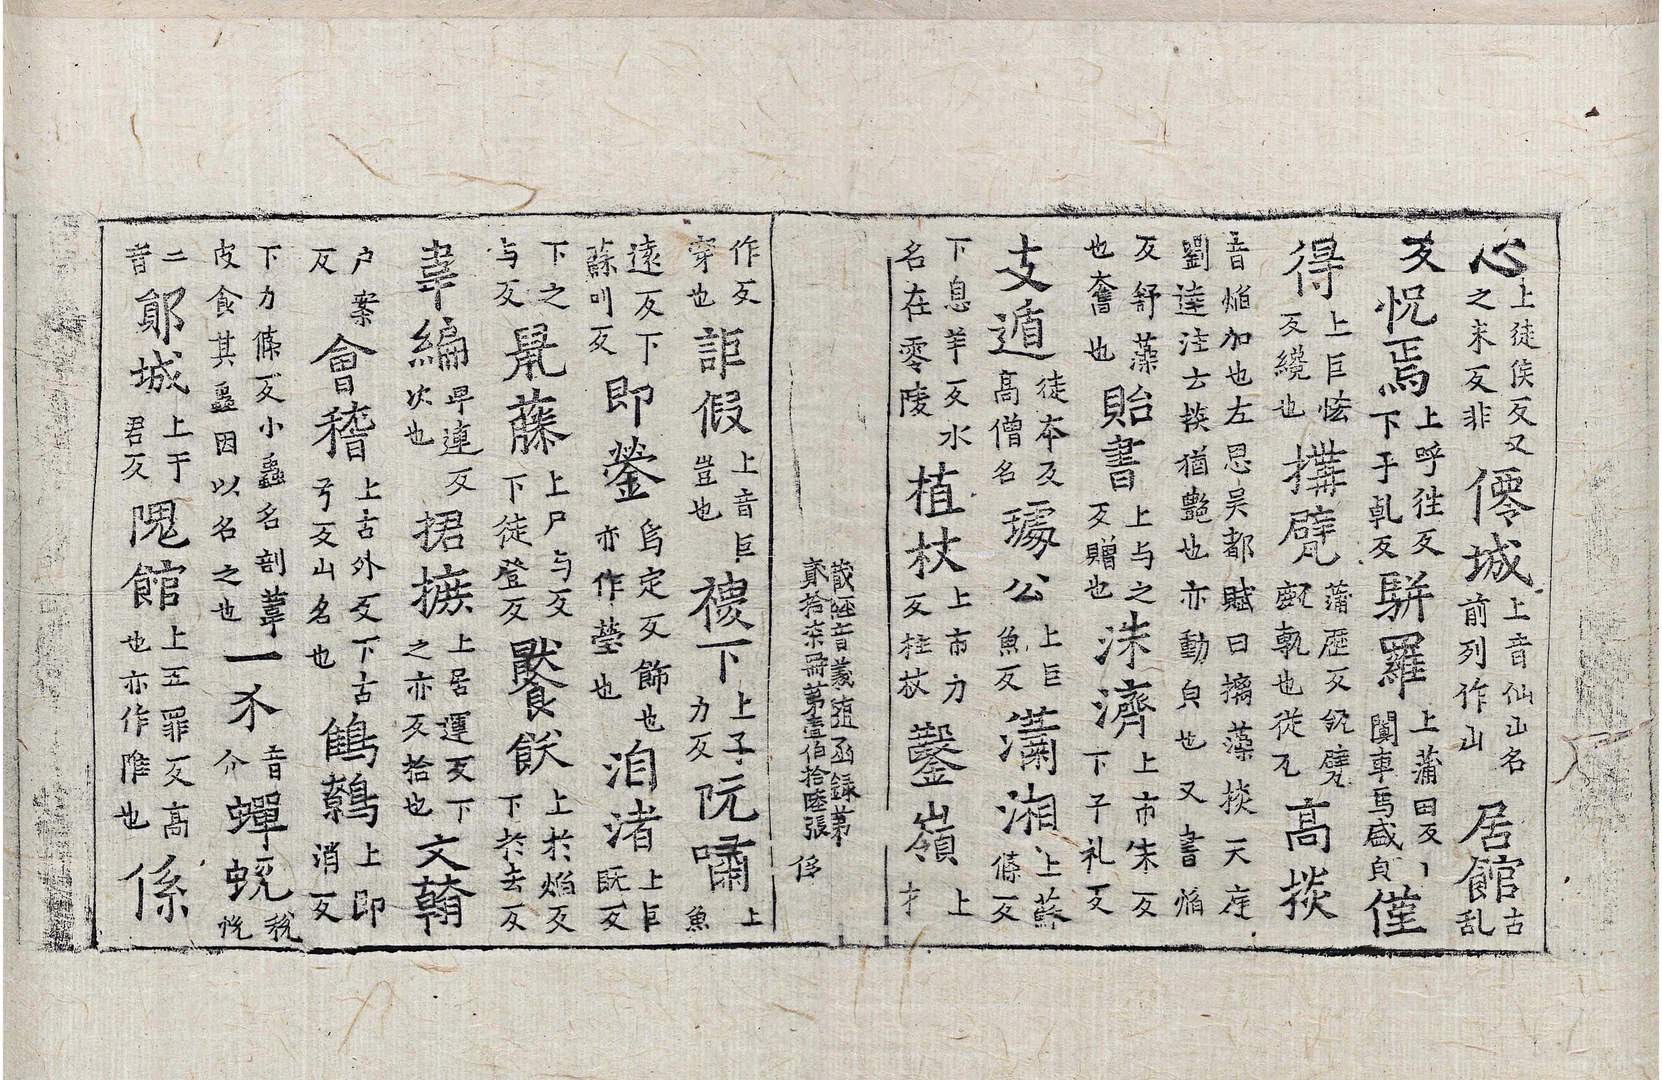 心上徒侯反又之未反非僊城上音仙山名前列作山居館古乱
反怳焉上呼往反下于乹反駢羅上蒲田反丨闐車馬盛皃僅
得上巨恡反纔也搆甓蒲歴反瓴甓㼾甎也從瓦高掞
音焔加也左思吴都賦曰摛藻掞天庭
劉逵注云掞猶艶也亦動皃也又書焔
反舒藻也奮也貽書上与之反贈也洙濟上市朱反下子礼反
支遁徒夲反高僧名璩公上巨魚反瀟湘上蘇條反
下息羊反水名在零陵植杖上市力反柱杖鑿嶺上才
藏經音義隨函録第
貳拾柒冊第壹伯拾陸張 侈
作反穿也詎假上音巨豈也禝下上子力反阮嘯上魚
遠反下蘇叫反即鎣烏定反飾也亦作瑩也洎渚上巨旣反
下之与反鼠藤上尸与反下徒登反猒飫上於焔反下於去反
韋編卑連反次也捃摭上居運反下之亦反拾也文翰
户案反會稽上古外反下古兮反山名也鶺鷯上即消反
下力條反小蟲名剖葦皮食其蟲因以名之也一介音介蟬蛻税恱
二音鄖城上于君反隗館上五罪反高也亦作陮也係